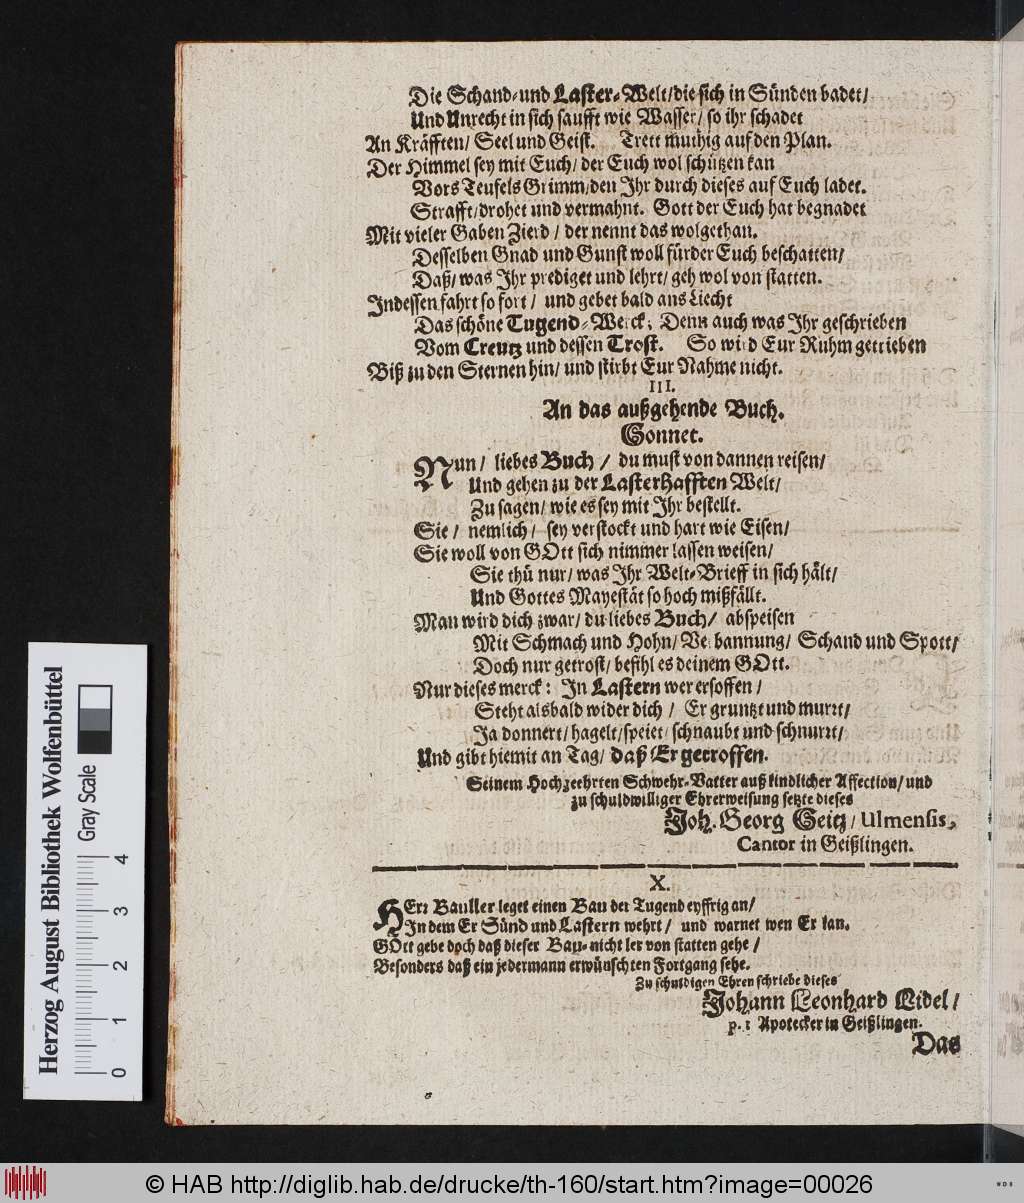 Die Schand-und Laster-Welt/die sich in Sünden badet/
Und Unrecht in sich saufft wie Wasser/ so ihr schadet
An Kräfften/ Seel und Geist. Trett muthig auf den Plan.
Der Himmel sey mit Euch/ der Euch wol schützen kan
Vors Teufels Grimm/den Ihr durch dieses auf Euch ladet.
Strafft/drohet und vermahnt. Gott der Euch hat begnadet
Mit vieler Gaben Zierd/ der nennt das wolgethan.
Desselben Gnad und Gunst woll fürder Euch beschatten/
Daß/ was Ihr prediget und lehrt/ geh wol von statten.
Indessen fahrt so fort/ und gebet bald ans Liecht
Das schöne Tugend-Werck; Denn auch was Ihr geschrieben
Vom Creutz und dessen Trost. So wird Eur Ruhm getrieben
Biß zu den Sternen hin/ und stirbt Eur Nahme nicht.
III.
An das außgehende Buch.
Sonnet.
Nun/ liebes Buch/ du must von dannen reisen/
Und gehen zu der Lasterhafften Welt/
Zu sagen/ wie es sey mit Ihr bestellt.
Sie/ nemlich/ sey verstockt und hart wie Eisen/
Sie woll von GOtt sich nimmer lassen weisen/
Sie thü nur/ was Ihr Welt-Brieff in sich hält/
Und Gottes Mayestät so hoch mißfällt.
Man wird dich zwar/ du liebes Buch/ abspeisen
Mit Schmach und Hohn/ Verbannung/ Schand und Spott/
Doch nur getrost/ befihl es deinem GOtt.
Nur dieses merck: In Lastern wer ersoffen/
Steht alsbald wider dich/ Er gruntzt und murrt/
Ja donnert/ hagelt/speiet/ schnaubt und schnurrt/
Und gibt hiemit an Tag/ daß Er getroffen.
Seinem Hochgeehrten Schwehr-Vatter auß kindlicher Affection/ und
zu schuldwilliger Ehrerweisung setzte dieses
Joh. Georg Geitz/ Ulmensis,
Cantor in Geißlingen.
X.
HErr Bauller leget einen Bau der Tugend eyffrig an/
In dem Er Sünd und Lastern wehrt/ und warnet wen Er kan.
GOtt gebe doch daß dieser Bau-nicht ler von statten gehe/
Besonders daß ein jedermann erwünschten Fortgang sehe.
Zu schuldigen Ehren schriebe dieses
Johann Leonhard Lidel/
p.t Apotecker in Geißlingen.
Das
Herzog August Bibliothek Wolfenbüttel
Gray Scale
0 1 2 3 4
© HAB http://diglib.hab.de/drucke/th-160/start.htm?image=00026